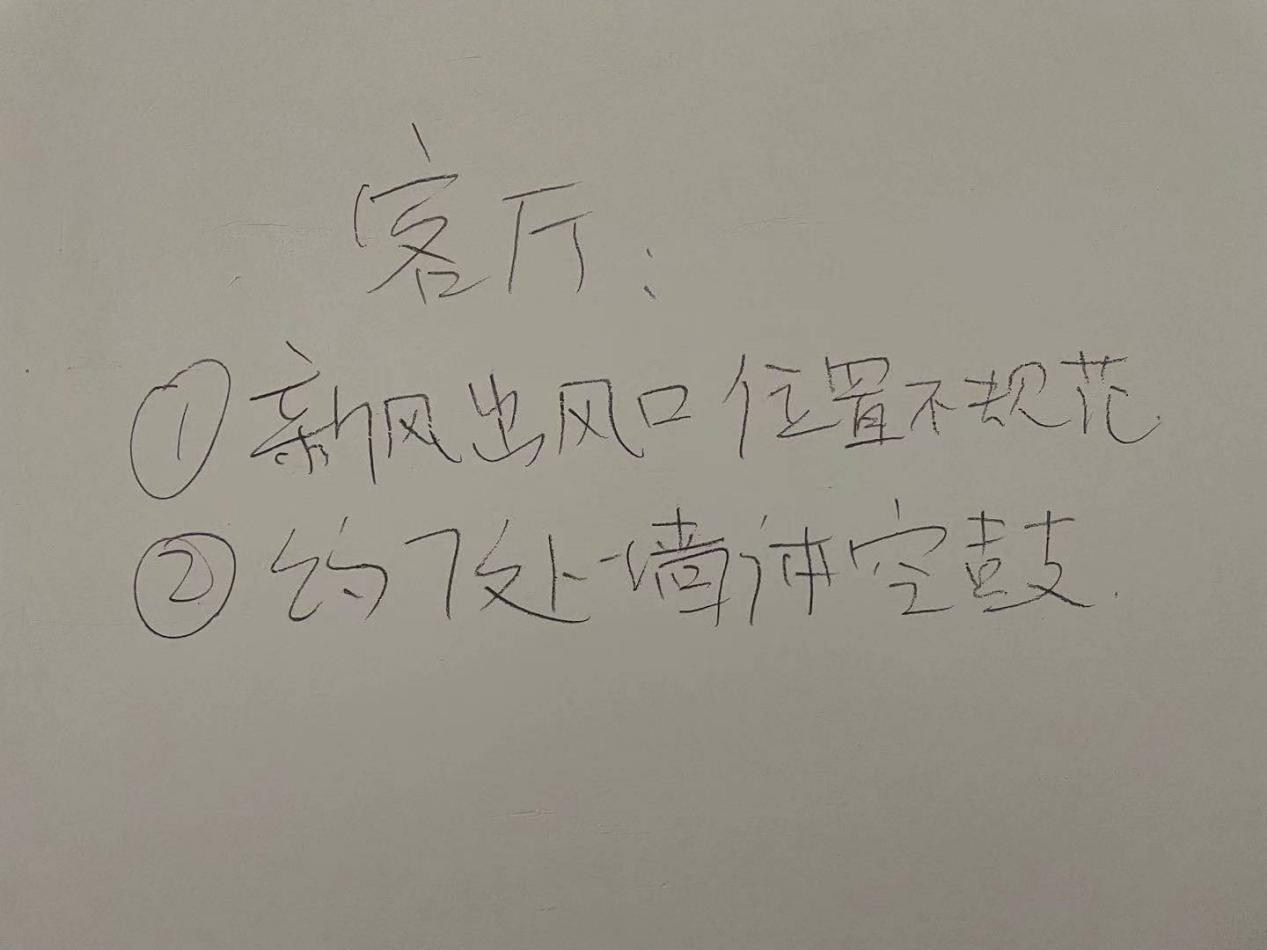 客厅:
①新风出风口位置不规范.
②约7处墙体空鼓.